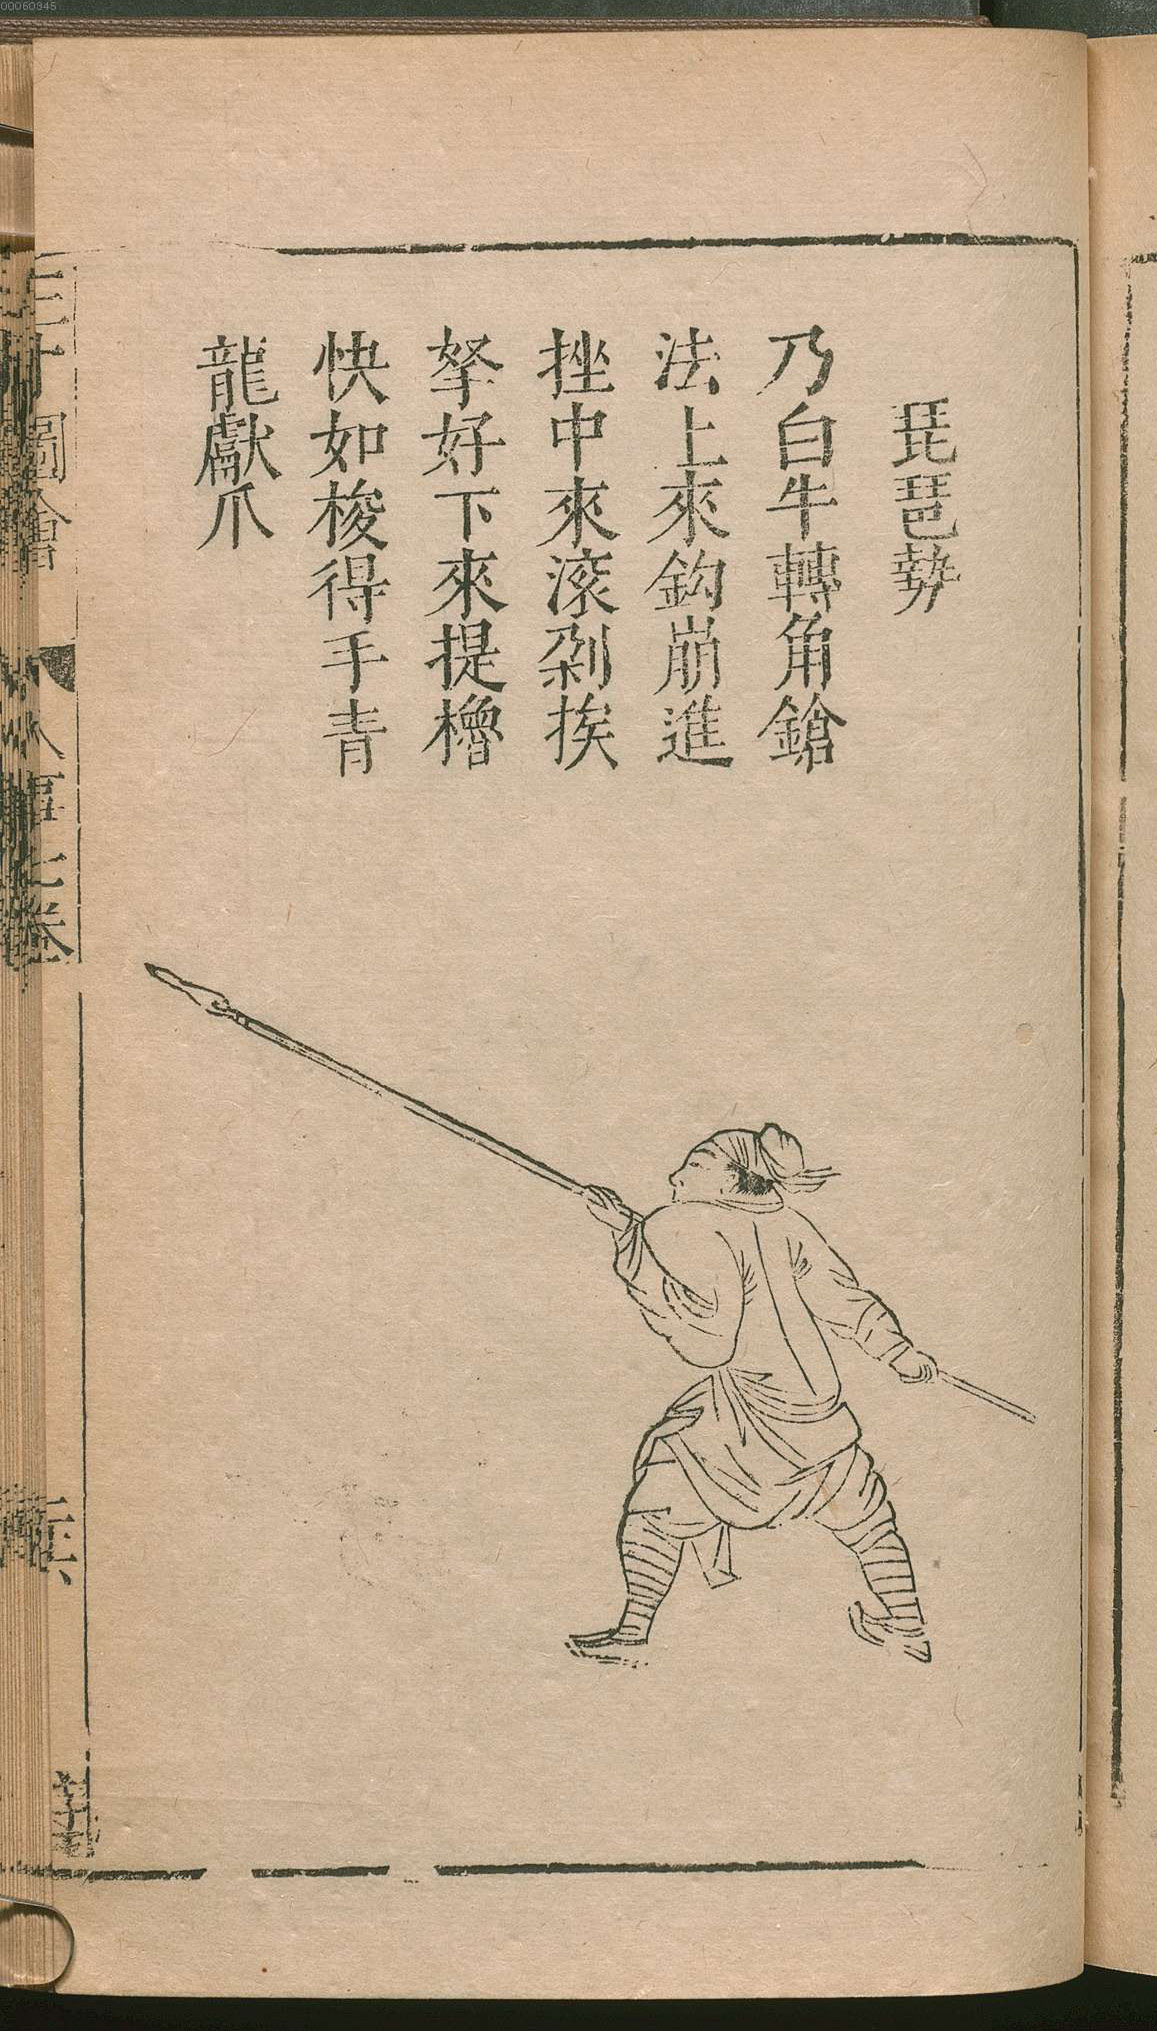 琵琶勢
乃白牛轉角鎗
法上來鈎崩進
挫中來滚剁挨
拏好下來提櫓
快如梭得手青
龍獻爪
三才圖會
人事七卷
00060345